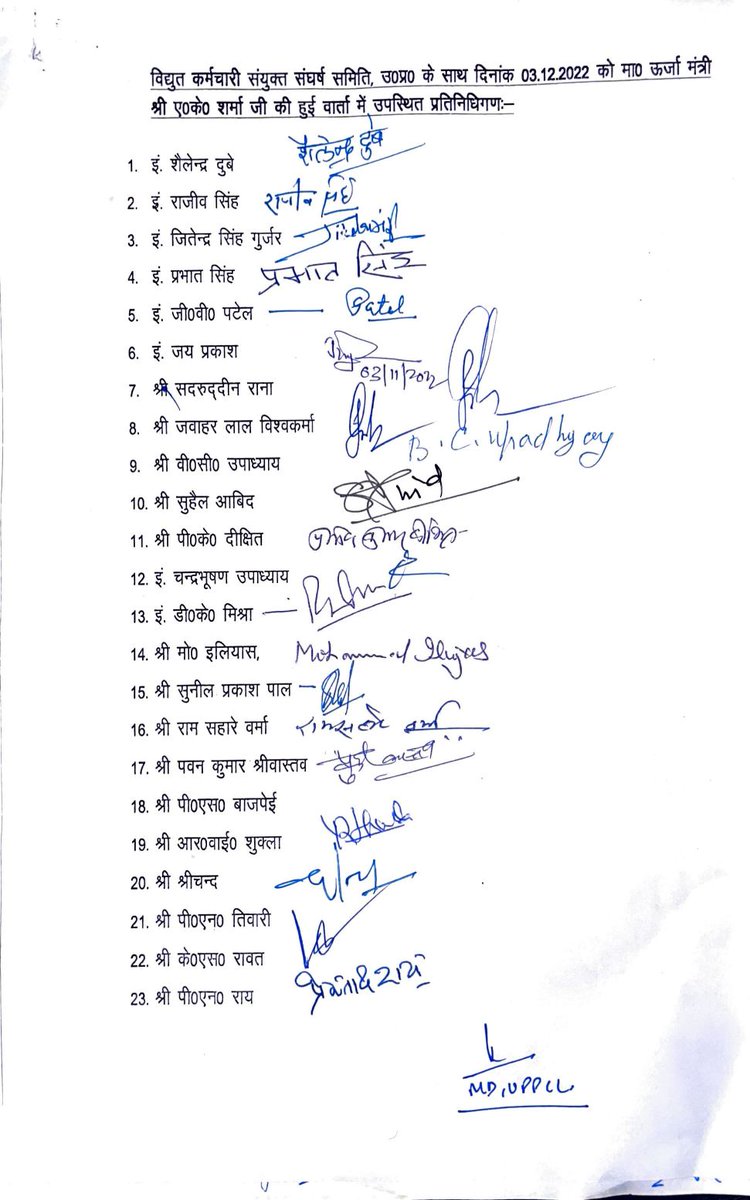 विद्युत कर्मचारी संयुक्त संघर्ष समिति, उ0प्र0 के साथ दिनांक 03.12.2022 को मा0 ऊर्जा मंत्री
श्री ए0के0 शर्मा जी की हुई वार्ता में उपस्थित प्रतिनिधिगणः–
1. इं. शैलेन्द्र दुबे शैलेन्द्र दुबे
2. इं. राजीव सिंह राजीव सिंह
3. इं. जितेन्द्र सिंह गुर्जर
4. इं. प्रभात सिंह प्रभात सिंह
5. इं. जी0वी0 पटेल Patel
6. इं. जय प्रकाश
03/11/2022
7. श्री सदरुद्दीन राना
8. श्री जवाहर लाल विश्वकर्मा
B. C. Upadhyay
9. श्री वी0सी0 उपाध्याय
10. श्री सुहैल आबिद
11. श्री पी0के0 दीक्षित
12. इं. चन्द्रभूषण उपाध्याय
13. इं. डी0के0 मिश्रा
14. श्री मो0 इलियास, Mohammad Iliyas
15. श्री सुनील प्रकाश पाल
16. श्री राम सहारे वर्मा रामसहारे वर्मा
17. श्री पवन कुमार श्रीवास्तव
18. श्री पी0एस0 बाजपेई
19. श्री आर0वाई0 शुक्ला
20. श्री श्रीचन्द
21. श्री पी0एन0 तिवारी
22. श्री के0एस0 रावत
23. श्री पी0एन0 राय
MD, UPPCL